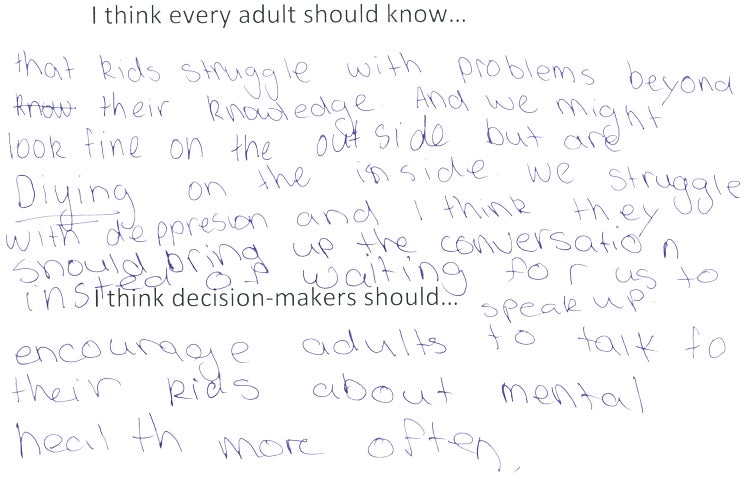 I think every adult should know...
that kids struggle with problems beyond
know their knowledge. And we might
look fine on the outside but are
Diying on the inside. we struggle
with deppresion and I think they
should bring up the conversation
insted of waiting for us to
speak up.
I think decision-makers should...
encourage adults to talk to
their kids about mental
health more often.